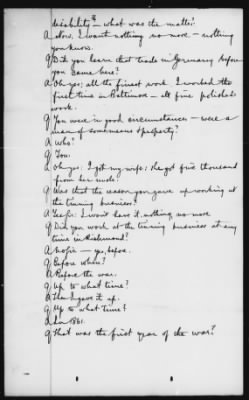 disability - what was the matter?
A Now, I want nothing no more - nothing
you know.
Q Did you learn that trade in Germany before
you came here?
A Oh yes; all the finest work. I worked the
first time in Baltimore - all fine polished
work.
Q You were in good circumstances - were a
man of some means & property?
A Who?
Q You.
A Oh yes; I got my wife; she got five thousand
from her uncle.
Q Was that the reason you gave up working at
the tinning business?
A Yes sir. I won't have it nothing no more
Q Did you work at the tinning business at any
time in Richmond?
A No sir - yes, before.
Q Before when?
A Before the war.
Q Up to what time?
A Then I gave it up.
Q Up to what time?
A In 1861.
Q That was the first year of the war?